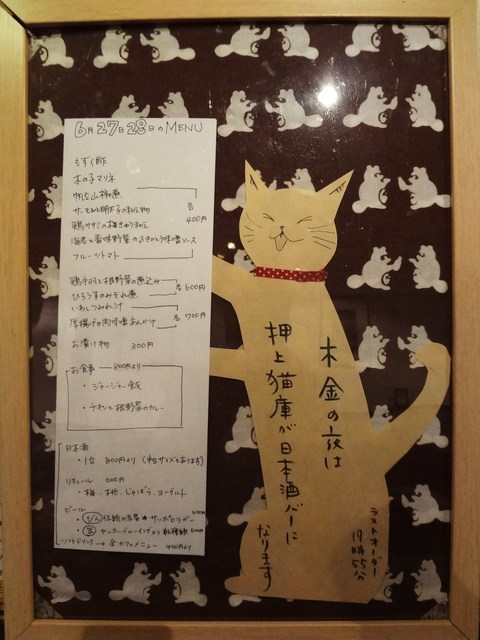 6月27日28日のMENU
もずく酢
木の子マリネ
帆立山椒煮
サーモンと明太子の和え物
各400円
鶏ササミの梅きゅう和え
海老と香味野菜のふきのとう味噌ソース
フルーツトマト
鶏手羽と根野菜の煮込み
各600円
ひろうすのみぞれ煮
いわしつみれ汁
各700円
厚揚げの肉味噌あんかけ
お漬け物 300円
お食事 800円より
・ジャージャー飯
・チキンと根野菜のカレー
日本酒
・1合 800円より (半合サイズもあります)
リキュール 600円
・梅・桃・じゃばら・ヨーグルト
ビール
・びん 伝説の
サッポロラガー
・缶 ヤッホーブルーイングより
ソフトドリンク→全カフェメニュー 400円より
木金の夜は
押上猫庫が日本酒バーに
なります
ラストオーダー
19時55分